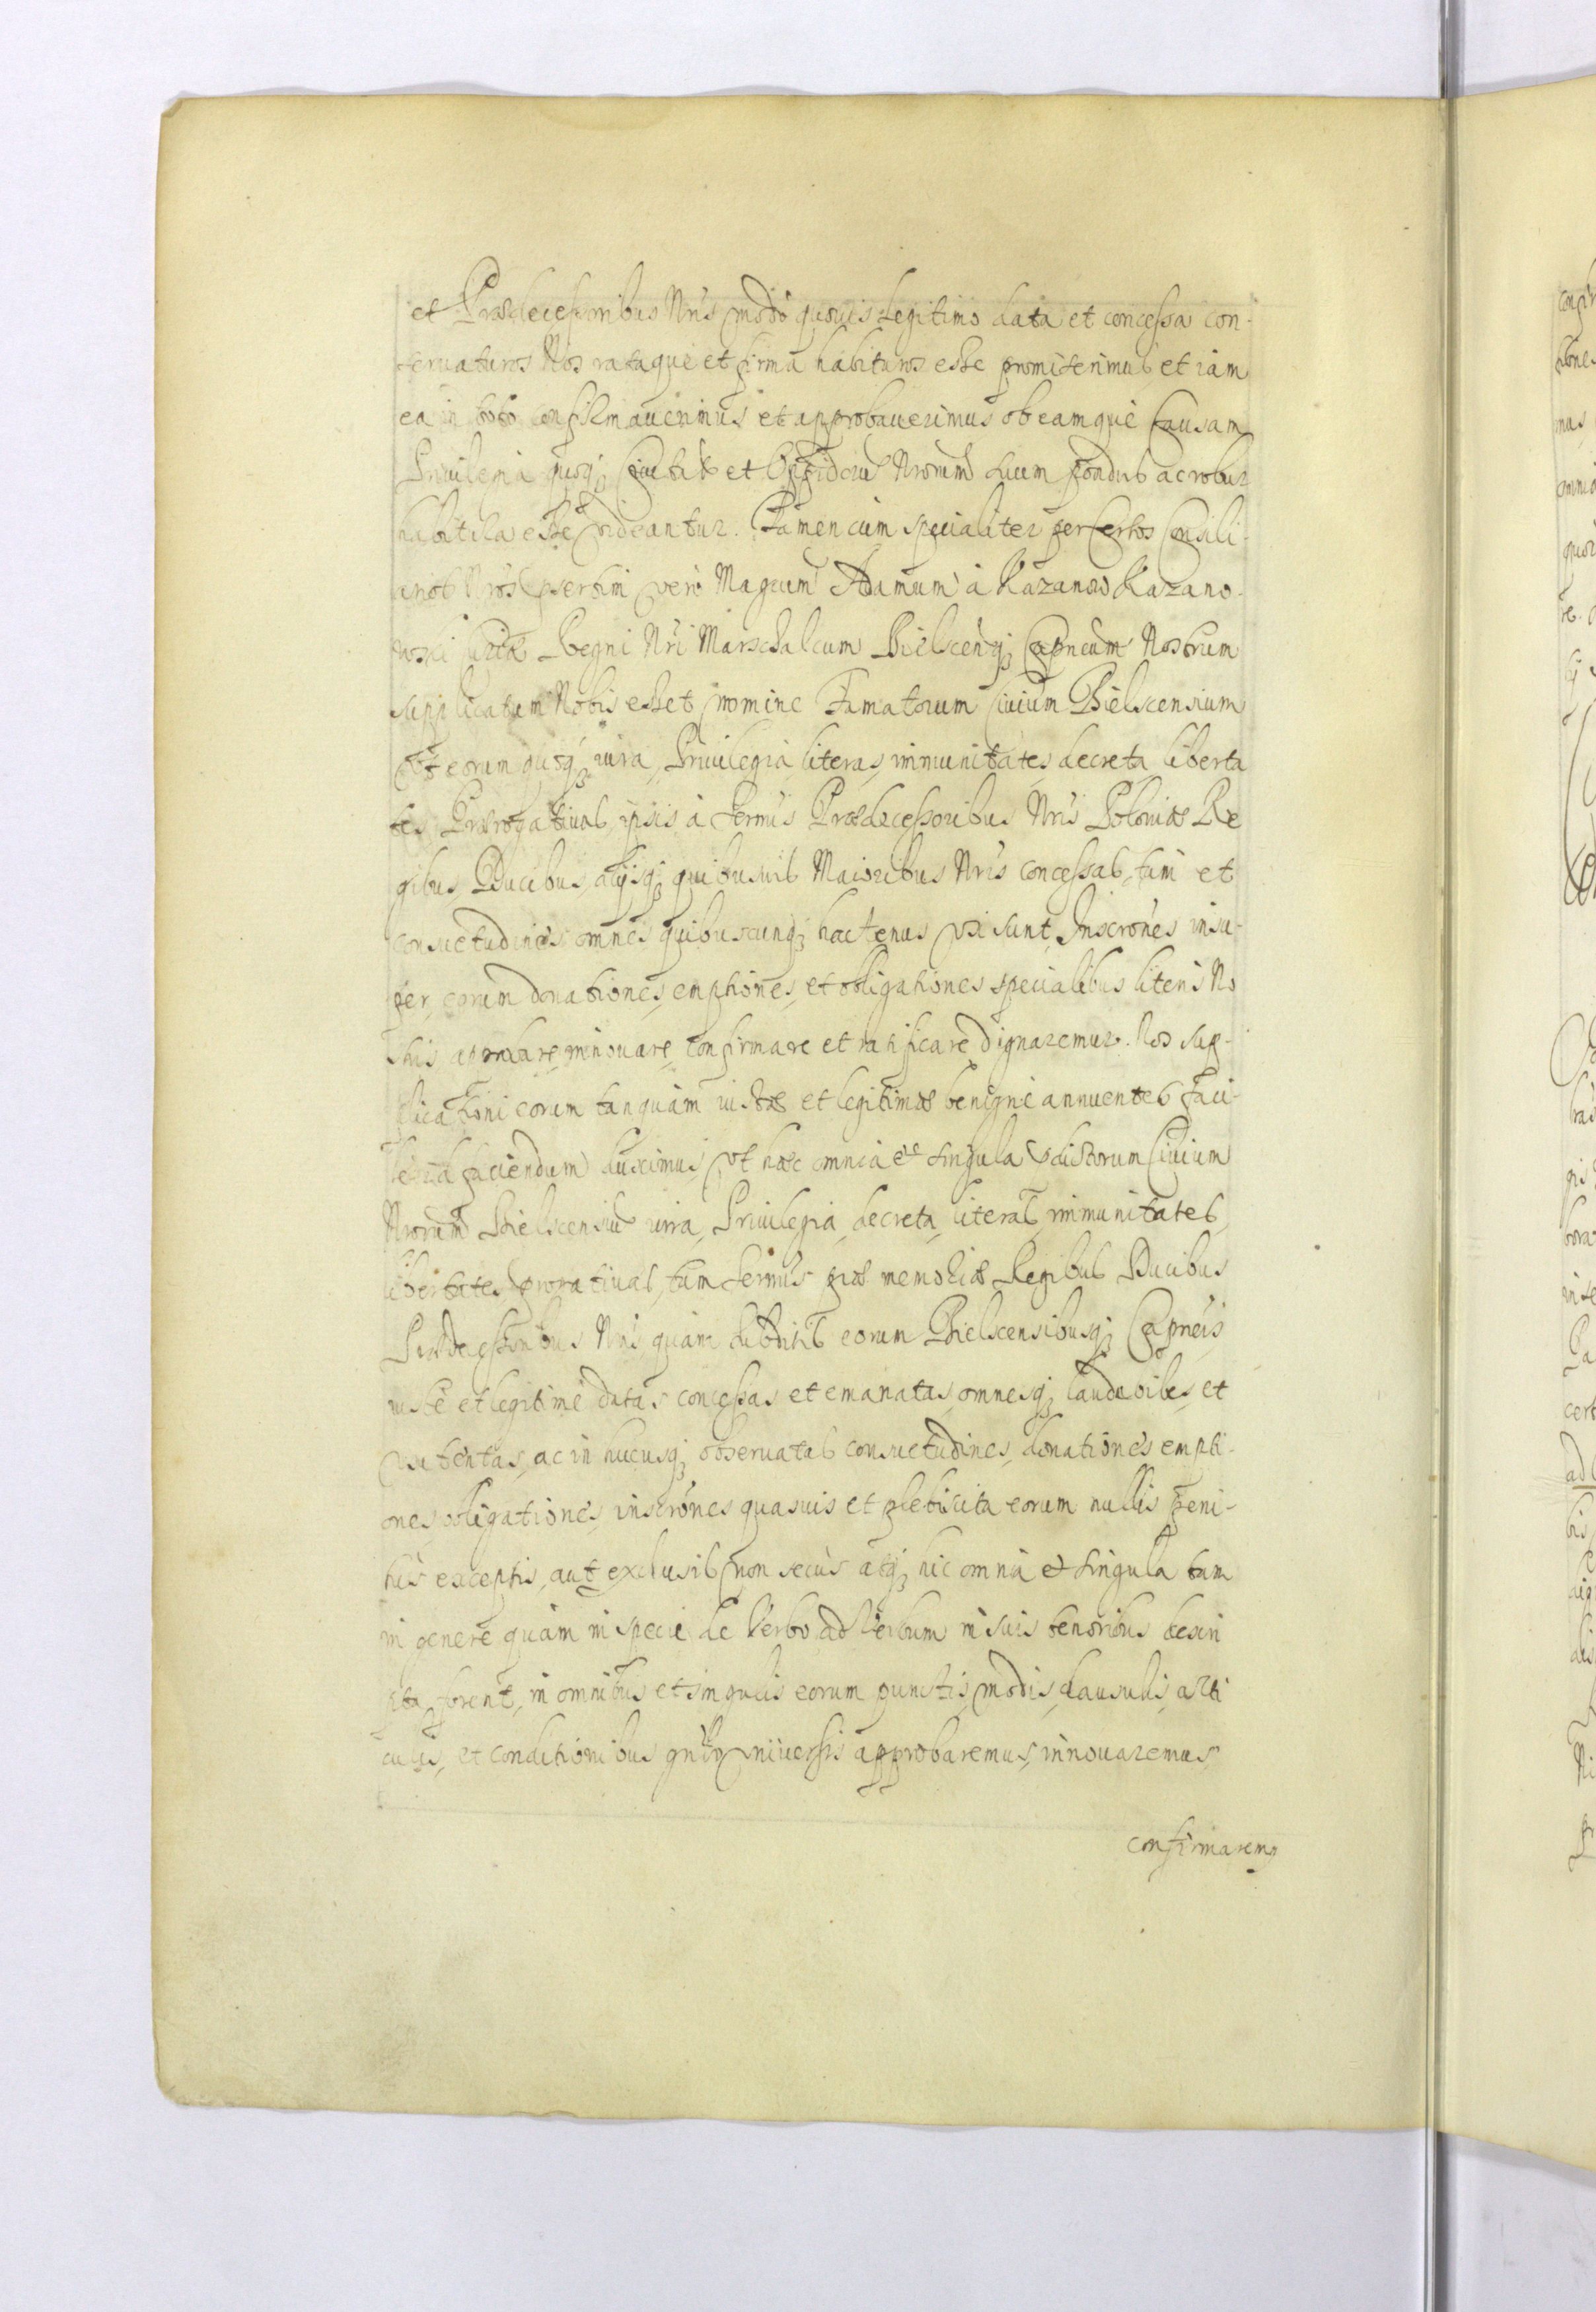 et Prædecessoribus Nris modo quovis legitimo data et concessa con-
servaturos Nos rataque et firma habituros esse promiserimus et iam
ea in toto confirmaverimus et approbaverimus ob eamque causam
Privilegia quoq; Civitatū et Oppidorū Nrorum suum pondus ac robur
habitura esse videantur. Tamen cum specialiter per certos Consili-
arios Nros psertim vero Magcum Adamum à Kazanow Kazano-
wski Curiæ Regni Nri Marschalcum Bielsceñq; Capneum Nostrum
supplicatum Nobis esset nomine Famatorum Civium Bielscensium
vt eorum quoq; iura, Privilegia literas, immunitates, decreta liberta
tes Prærogativas, ipsis à Sermis Prædecessoribus Nris Poloniæ Re
gibus Ducibus, alijsq; quibusvis Maioribus Nris concessas, tum et
consuetudines omnes quibuscunq; hactenus vsi sunt, Inscrones insu-
per, eorum donationes, emptiones, et obligationes specialibus literis No
stris approbare, innovare, confirmare et ratificare dignaremur. Nos sup-
plicationi eorum tanquam iustæ et legitimæ benigne annuentes faci-
le id faciendum duximus, vt hæc omnia et singula pdictorum Civium
Nrorum Bielscensiū iura, Privilegia, decreta, literas, immunitates,
libertates, prorativas, tum Sermis piæ memoriæ Regibus Ducibus
Prædecessoribus Nris quam subditis eorum Bielscensibusq; Capneis
iuste et legitime datas concessas et emanatas, omnesq; laudabiles, et
vsu tentas, ac in hucusq; observatas consuetudines, donationes empti-
ones obligationes, inscrones quasuis et plebiscita eorum nullis peni-
tus exceptis, aut exclusis non secus atq; hic omnia et singula tum
in genere quam in specie de Verbo ad Verbum in suis tenoribus descri
pta forent, in omnibus et singulis eorum punctis, modis, clausulis, arti
culis, et conditionibus gnlr vniversis approbaremus, innovaremus,
confirmarem9